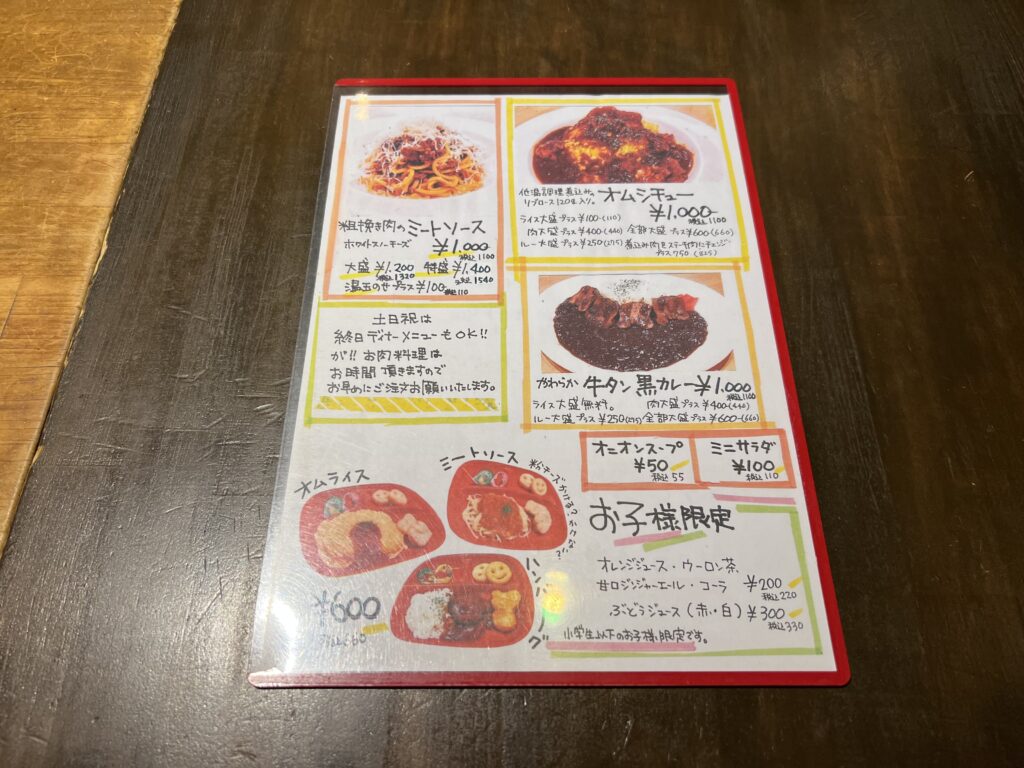 粗挽き肉のミートソース
ホワイトスノーチーズ ¥1.000
税込1100
大盛 ¥1.200 特盛 ¥1.400
税込1320 税込1540
温玉のせプラス¥100 税込110
低温調理煮込み
リブロース120g入り。
オムシチュー
¥1.000 税込1100
ライス大盛プラス¥100-(110)
肉大盛プラス¥400-(440) 全部大盛プラス¥600-(660)
ルー大盛プラス¥250(275) 煮込み肉をステーキ肉にチェンジ
プラス750 (825)
土日祝は
終日ディナーメニューもOK!!
が!! お肉料理は
お時間頂きますので
お早めにご注文お願いいたします。
やわらか 牛タン黒カレー¥1.000
税込1100
ライス大盛無料。 肉大盛プラス¥400-(440)
ルー大盛プラス¥250(275) 全部大盛プラス¥600-(660)
オニオンスープ
¥50
税込55
ミニサラダ
¥100
税込110
オムライス
ミートソース
粉チーズかける?
ハンバーグ
¥600
税込660
お子様限定
オレンジジュース・ウーロン茶、
甘口ジンジャーエール・コーラ ¥200
税込220
ぶどうジュース(赤・白) ¥300
税込330
小学生以下のお子様限定です。